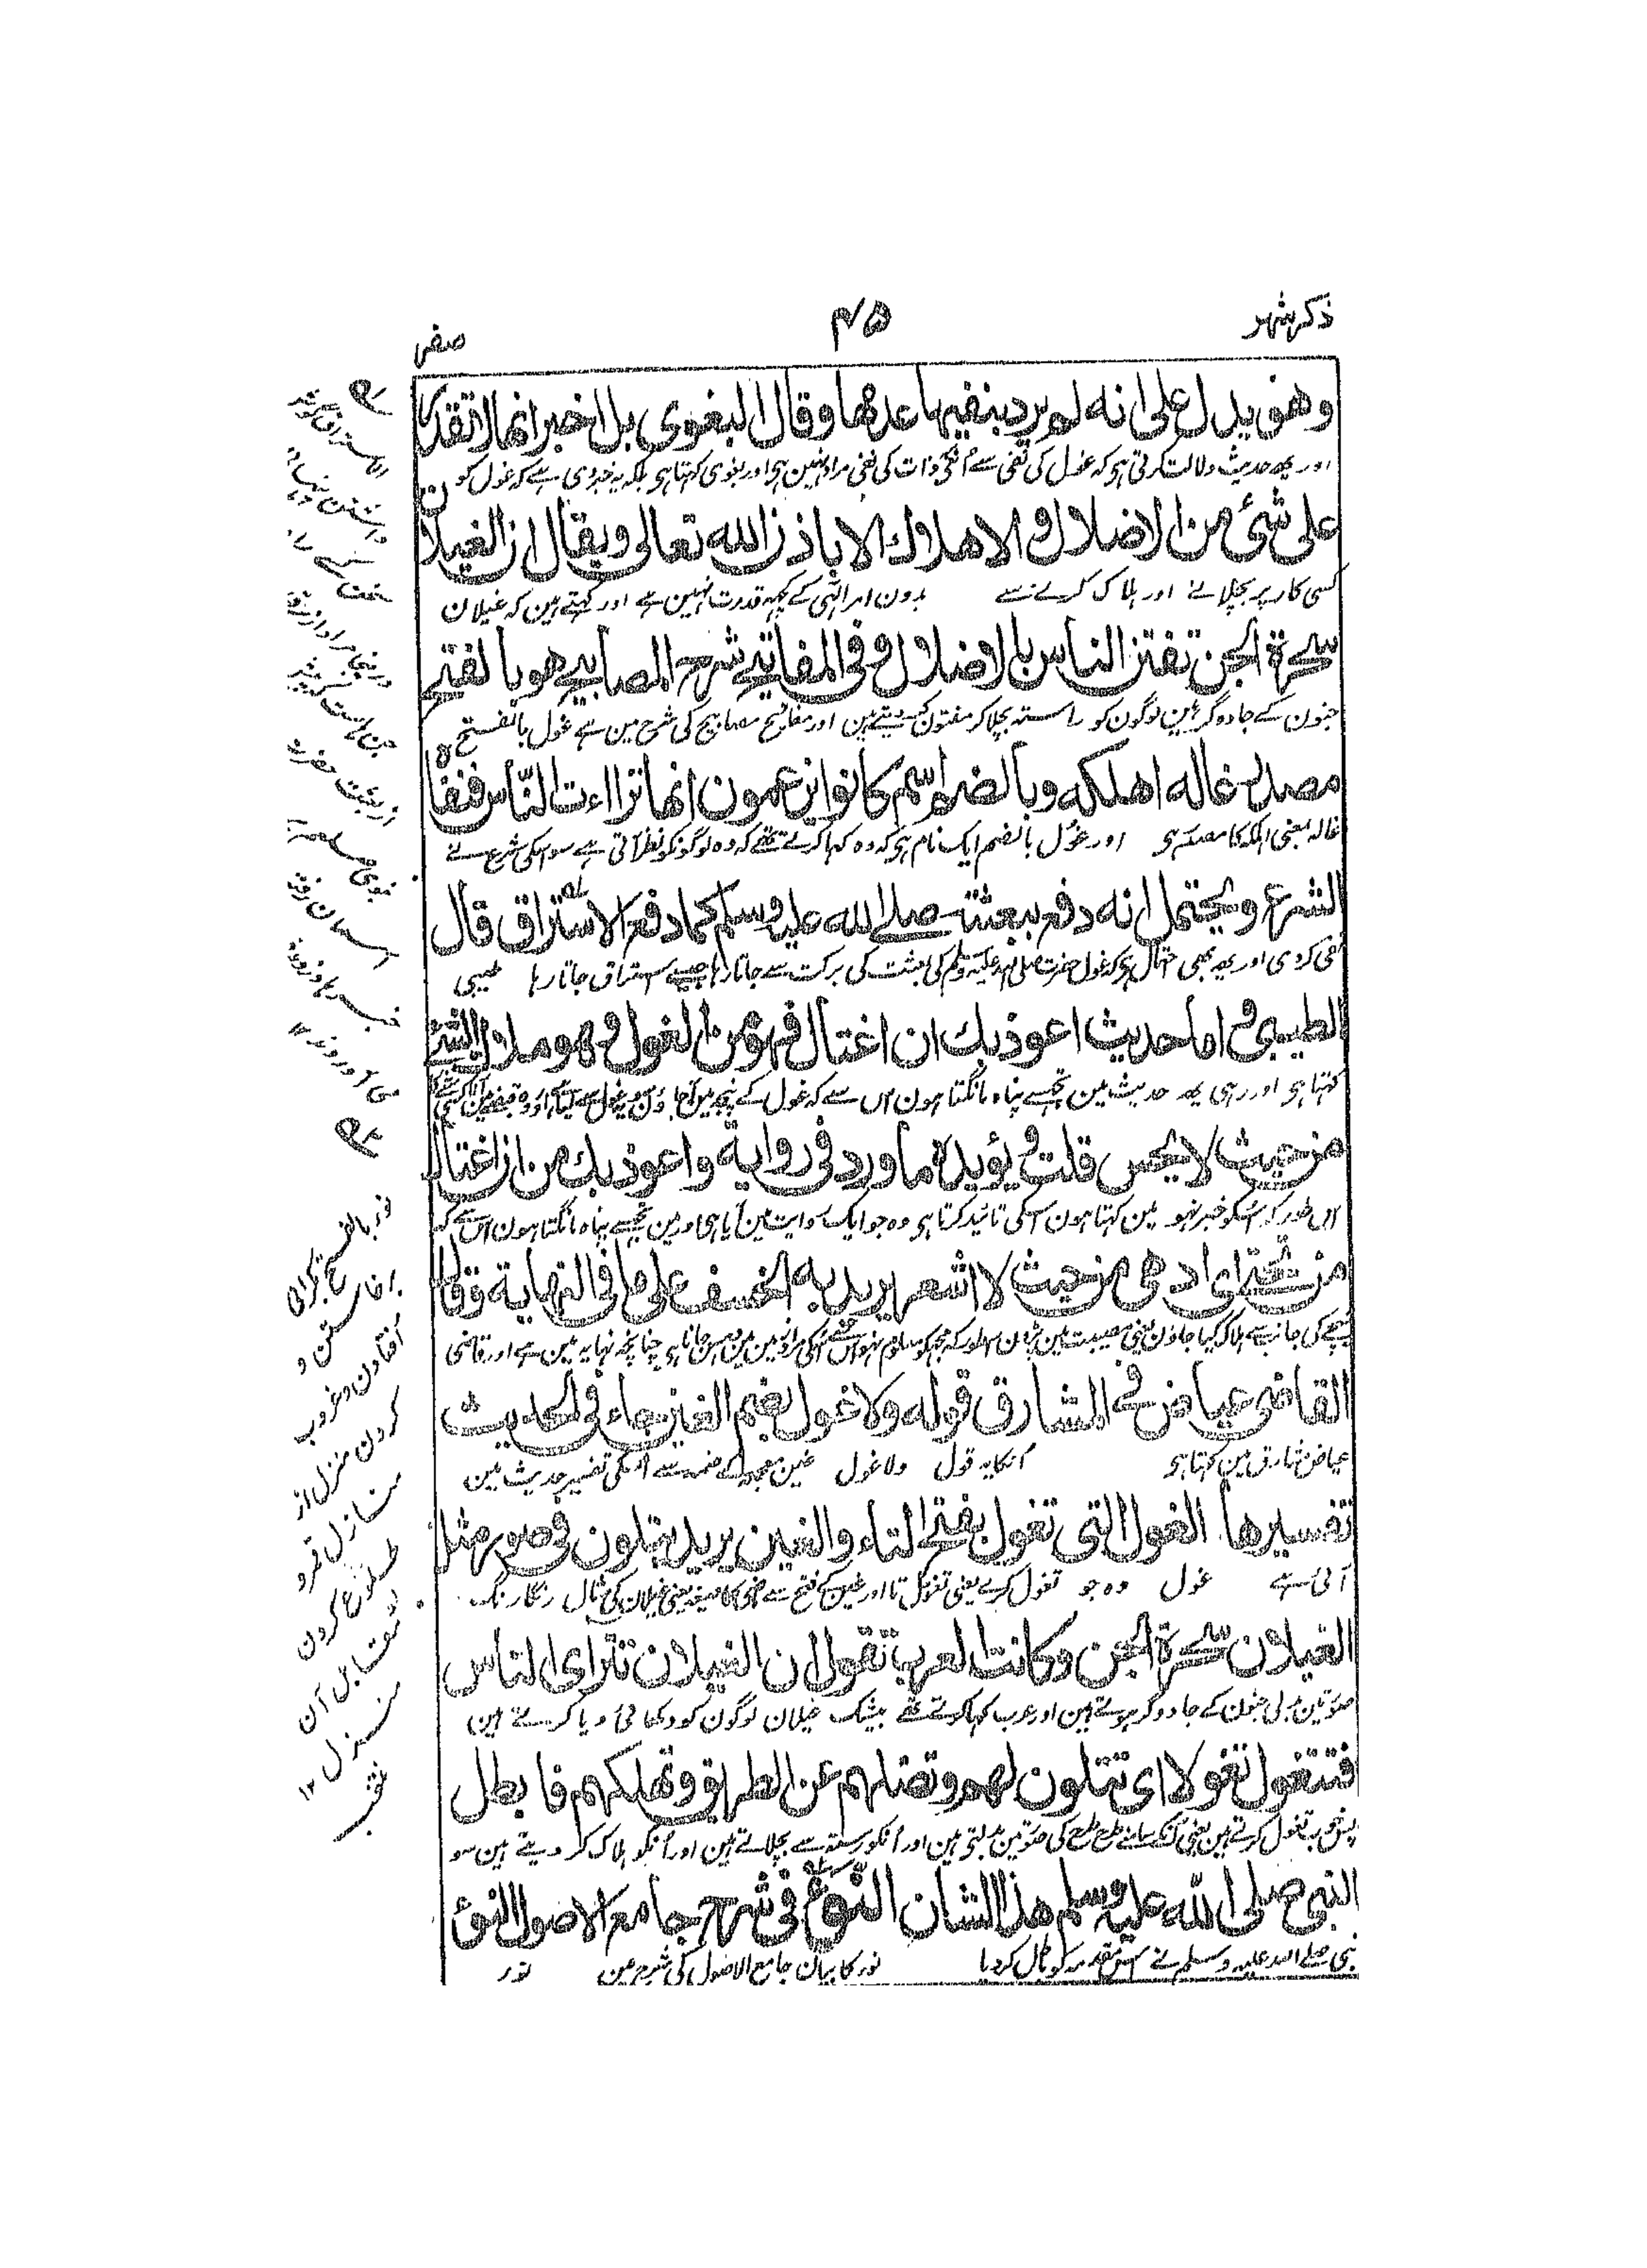 ذکر شهر
۴۵
صفر
وهو يدل على انه لم يرد بنفيها عدمها وقال البغوى بل اخبر انها لا تقدر
اور یہ حدیث دلالت کرتی ہی کہ غول کی نفی سے اُنکی ذات کی نفی مراد نہین ہی اور بغوی کہتا ہی بلکہ یہ خبر دی ہے کہ غول کو
على شئ من الاضلال و الاهلاك الا باذن الله تعالى ويقال ان الغيلان
کسی کار پر بچلانے اور ہلاک کرنے سے بدون امر الٰہی کے کچہہ قدرت نہین ہے اور کہتے ہین کہ غیلان
سحرة الجن تفتن الناس بالاضلال و فى المفاتيح شرح المصابيح هو بالفتح
جنون کے جادوگر ہین لوگون کو راستہ بچلا کر مفتون کر دیتے ہین اور مفاتیح مصابیح کی شرح مین ہے غول بالفتح
مصدر غاله اهلكه وبالضم اسم كانوا يزعمون انها تراءت الناس فنفاه
غالہ بمعنی اہلکہ کا مصدر ہی اور غول بالضم ایک نام ہی کہ وہ کہا کرتے تھے کہ وہ لوگونکو نظر آتی ہے سو اسکی شرع نے
الشرع ويحتمل انه دفع ببعثته صلى الله عليه وسلم كما دفع الاستراق قال
نفی کردی اور یہ بھی احتمال ہی کہ غول حضرت صلی اللہ علیہ وسلم کی بعثت کی برکت سے جاتا رہا جیسے استراق جاتا رہا طیبی
الطيبى و اما حديث اعوذ بك ان اغتال فهو من الغول و هو ملاك الشئ
کہتا ہی اور رہی یہ حدیث مین تجھسے پناہ مانگتا ہون اس سے کہ غول کے پنجہ مین
من حيث لا يحس قلت و يؤيده ما ورد فى رواية واعوذ بك من ان اغتال
اس طور کہ اسکو خبر نہو مین کہتا ہون اسکی تائید کرتا ہی وہ جو ایک روایت مین آیا ہی اور مین تجھسے پناہ مانگتا ہون اس سے کہ
من تحتى اى ادهى من حيث لا اشعر يريد به الخسف على ما فى النهاية وقال
نیچے کی جانب سے ہلاک کیا جاؤن یعنی مصیبت مین چنانچہ نہایہ مین ہے اور قاضی
القاضى عياض فى المشارق قوله ولا غول بضم الغين جاء فى الحديث
عیاض مشارق مین کہتا ہی اُنکا یہ قول ولا غول غین معجمہ کے ضمہ سے اُسکی تفسیر حدیث مین
تفسيرها الغول التى تغول بفتح التاء والغين يريد يتلون فى صور مثل
آئی ہے غول وہ جو تغول کرے یعنی تغول تا اور غین کے فتح سے رنگا رنگ
الغيلان سحرة الجن وكانت العرب تقول ان الغيلان تتراى الناس
صورتین بدلی جنون کے جادوگر ہوتے ہین اور عرب کہا کرتے تھے بیشک غیلان لوگون کو دکھائی دیا کرتے ہین
فتتغول تغولا اى تتلون لهم وتضلهم عن الطريق وتهلكهم فابطل
پس تغول کرتے ہین یعنی اُنکے سامنے طرح طرح کی صورتین بدلتی ہین اور اُنکو رستہ سے بچلاتے ہین اور اُنکو ہلاک کر دیتے ہین سو
النبى صلى الله عليه وسلم هذا الشان النوء فى شرح جامع الاصول النوء
نبی صلے اللہ علیہ وسلم نے اس مقدمہ کو باطل کردیا نور کا بیان جامع الاصول کی شرح مین نور
نوء بالفتح گرانی
برخاستن و
افتادن و غروب
کردن منزل از
منازل قمر و
طلوع کردن
مقابل آن
منزل ۱۲